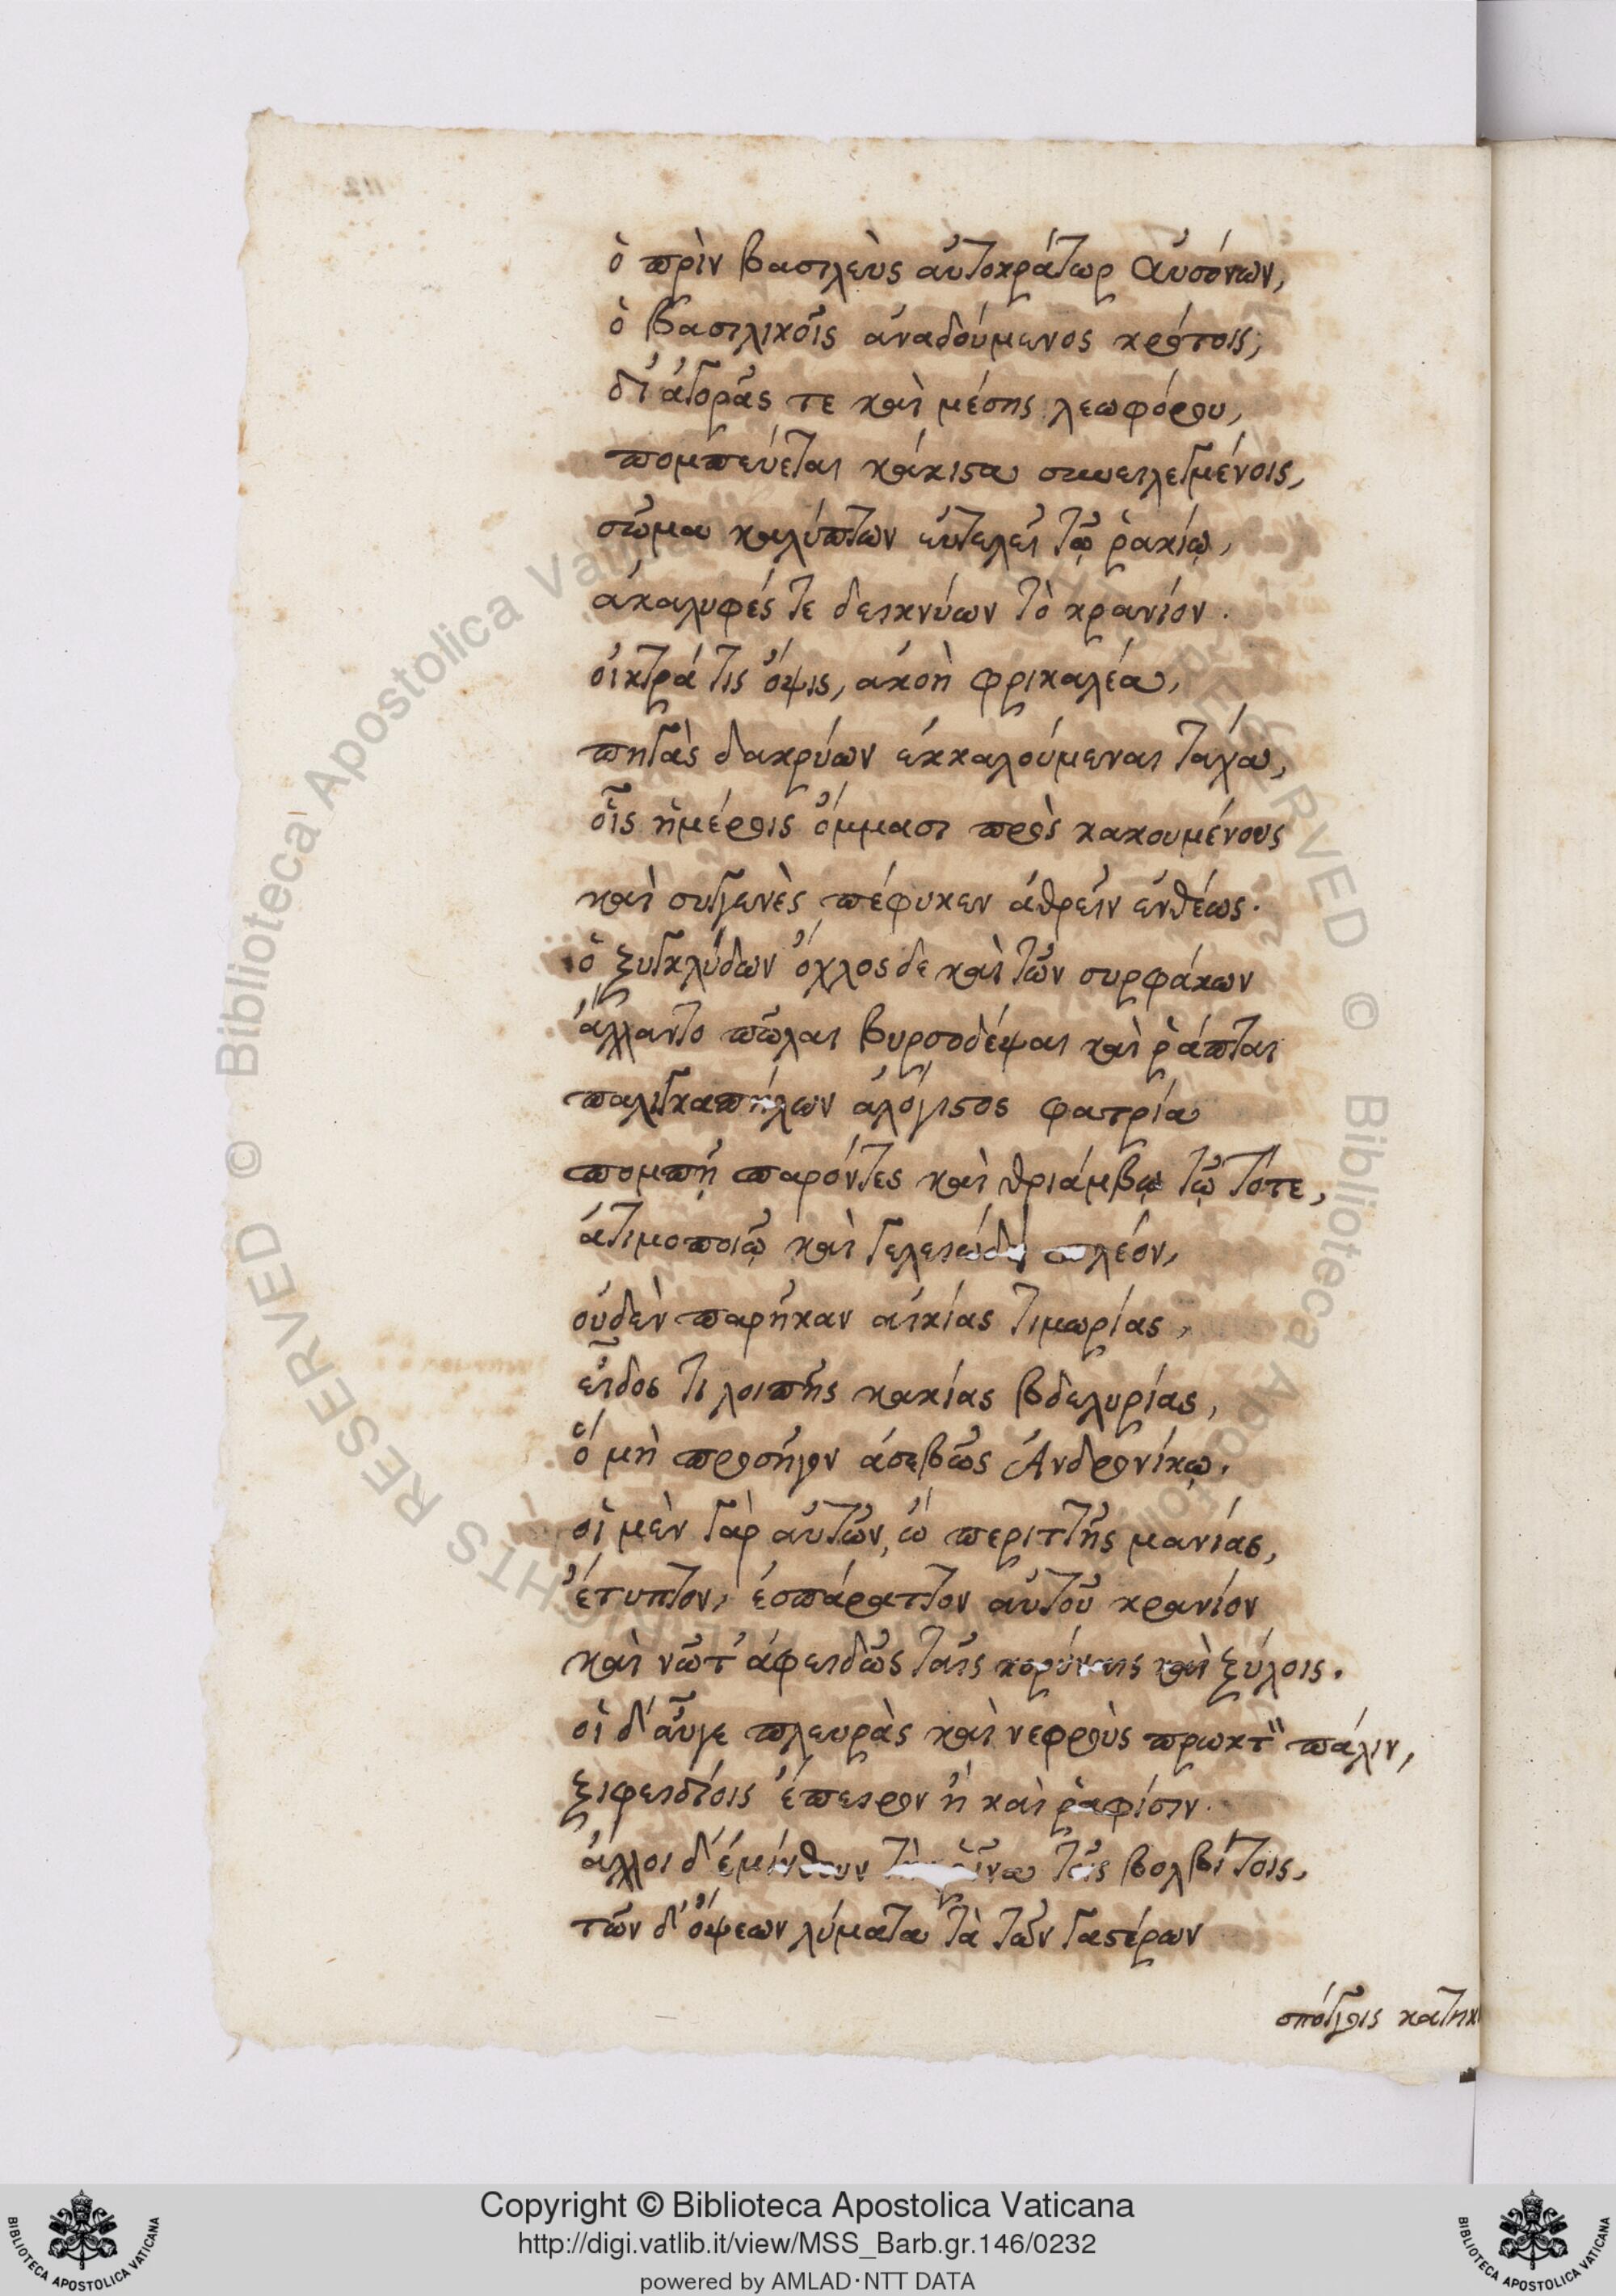 ὁ πρὶν βασιλεὺς αὐτοκράτωρ Αὐσόνων,
ὁ βασιλικοῖς ἀναδούμενος κρότοις,
δι' ἀγορᾶς τε καὶ μέσης λεωφόρου,
πομπεύεται κάκιστα συνειλεγμένοις,
σῶμα καλύπτων εὐτελεῖ τῷ ῥακίῳ,
ἀκαλυφές τε δεικνύων τὸ κρανίον.
οἰκτρά τις ὄψις, ἀκοὴ φρικαλέα,
πηγὰς δακρύων ἐκκαλούμεναι τάχα,
οἷς ἡμέροις ὄμμασι πρὸς κακουμένους
καὶ συγγενὲς πέφυκεν ἀθρεῖν ἐνθέως.
ὁ ξυγκλύδων ὄχλος δε καὶ τῶν συρφάκων
ἀλλαντο πῶλαι βυρσοδέψαι καὶ ῥάπται
παλιγκαπήλων ἀλόγιστος φατρία
πομπῇ παρόντες καὶ θριάμβῳ τῷ τότε,
ἀτιμοποιῷ καὶ γελειώδη πλέον,
οὐδὲν παρῆκαν αἰκίας τιμωρίας,
εἶδος τι λοιπῆς κακίας βδελυρίας,
ὃ μὴ προσῆγον ἀσεβῶς Ἀνδρονίκῳ.
οἱ μὲν γὰρ αὐτῶν, ὢ περιττῆς μανίας,
ἔτυπτον, ἐσπάραττον αὐτοῦ κρανίον
καὶ νῶτ' ἀφειδῶς ταῖς κορύναις καὶ ξύλοις.
οἱ δ' αὖγε πλευρὰς καὶ νεφροὺς πρωκτ" πάλιν,
ξιφειδίοις ἔπειρον ἢ καὶ ῥαφίσιν.
ἄλλοι δ' ἐμίνθουν τὴν ῥῖνα τοῖς βολβίτοις,
τῶν δ' ὄψεων λύματα τὰ τῶν γαστέρων
σπόγγοις κατη
Copyright © Biblioteca Apostolica Vaticana
http://digi.vatlib.it/view/MSS_Barb.gr.146/0232
powered by AMLAD·NTT DATA
BIBLIOTECA APOSTOLICA VATICANA
BIBLIOTECA APOSTOLICA VATICANA